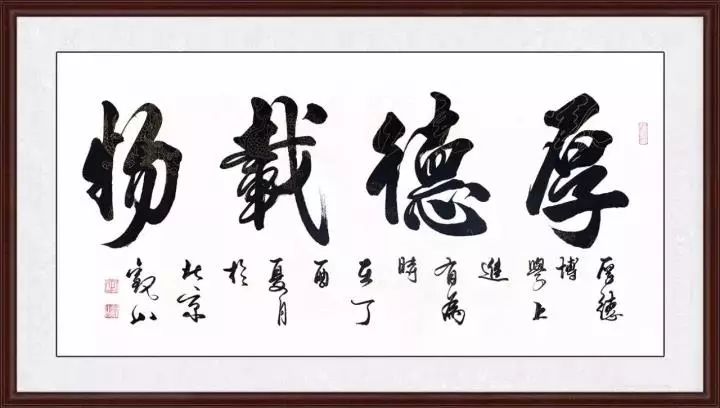 厚德載物
厚德博學上進有為時在丁酉夏月於北京觀山